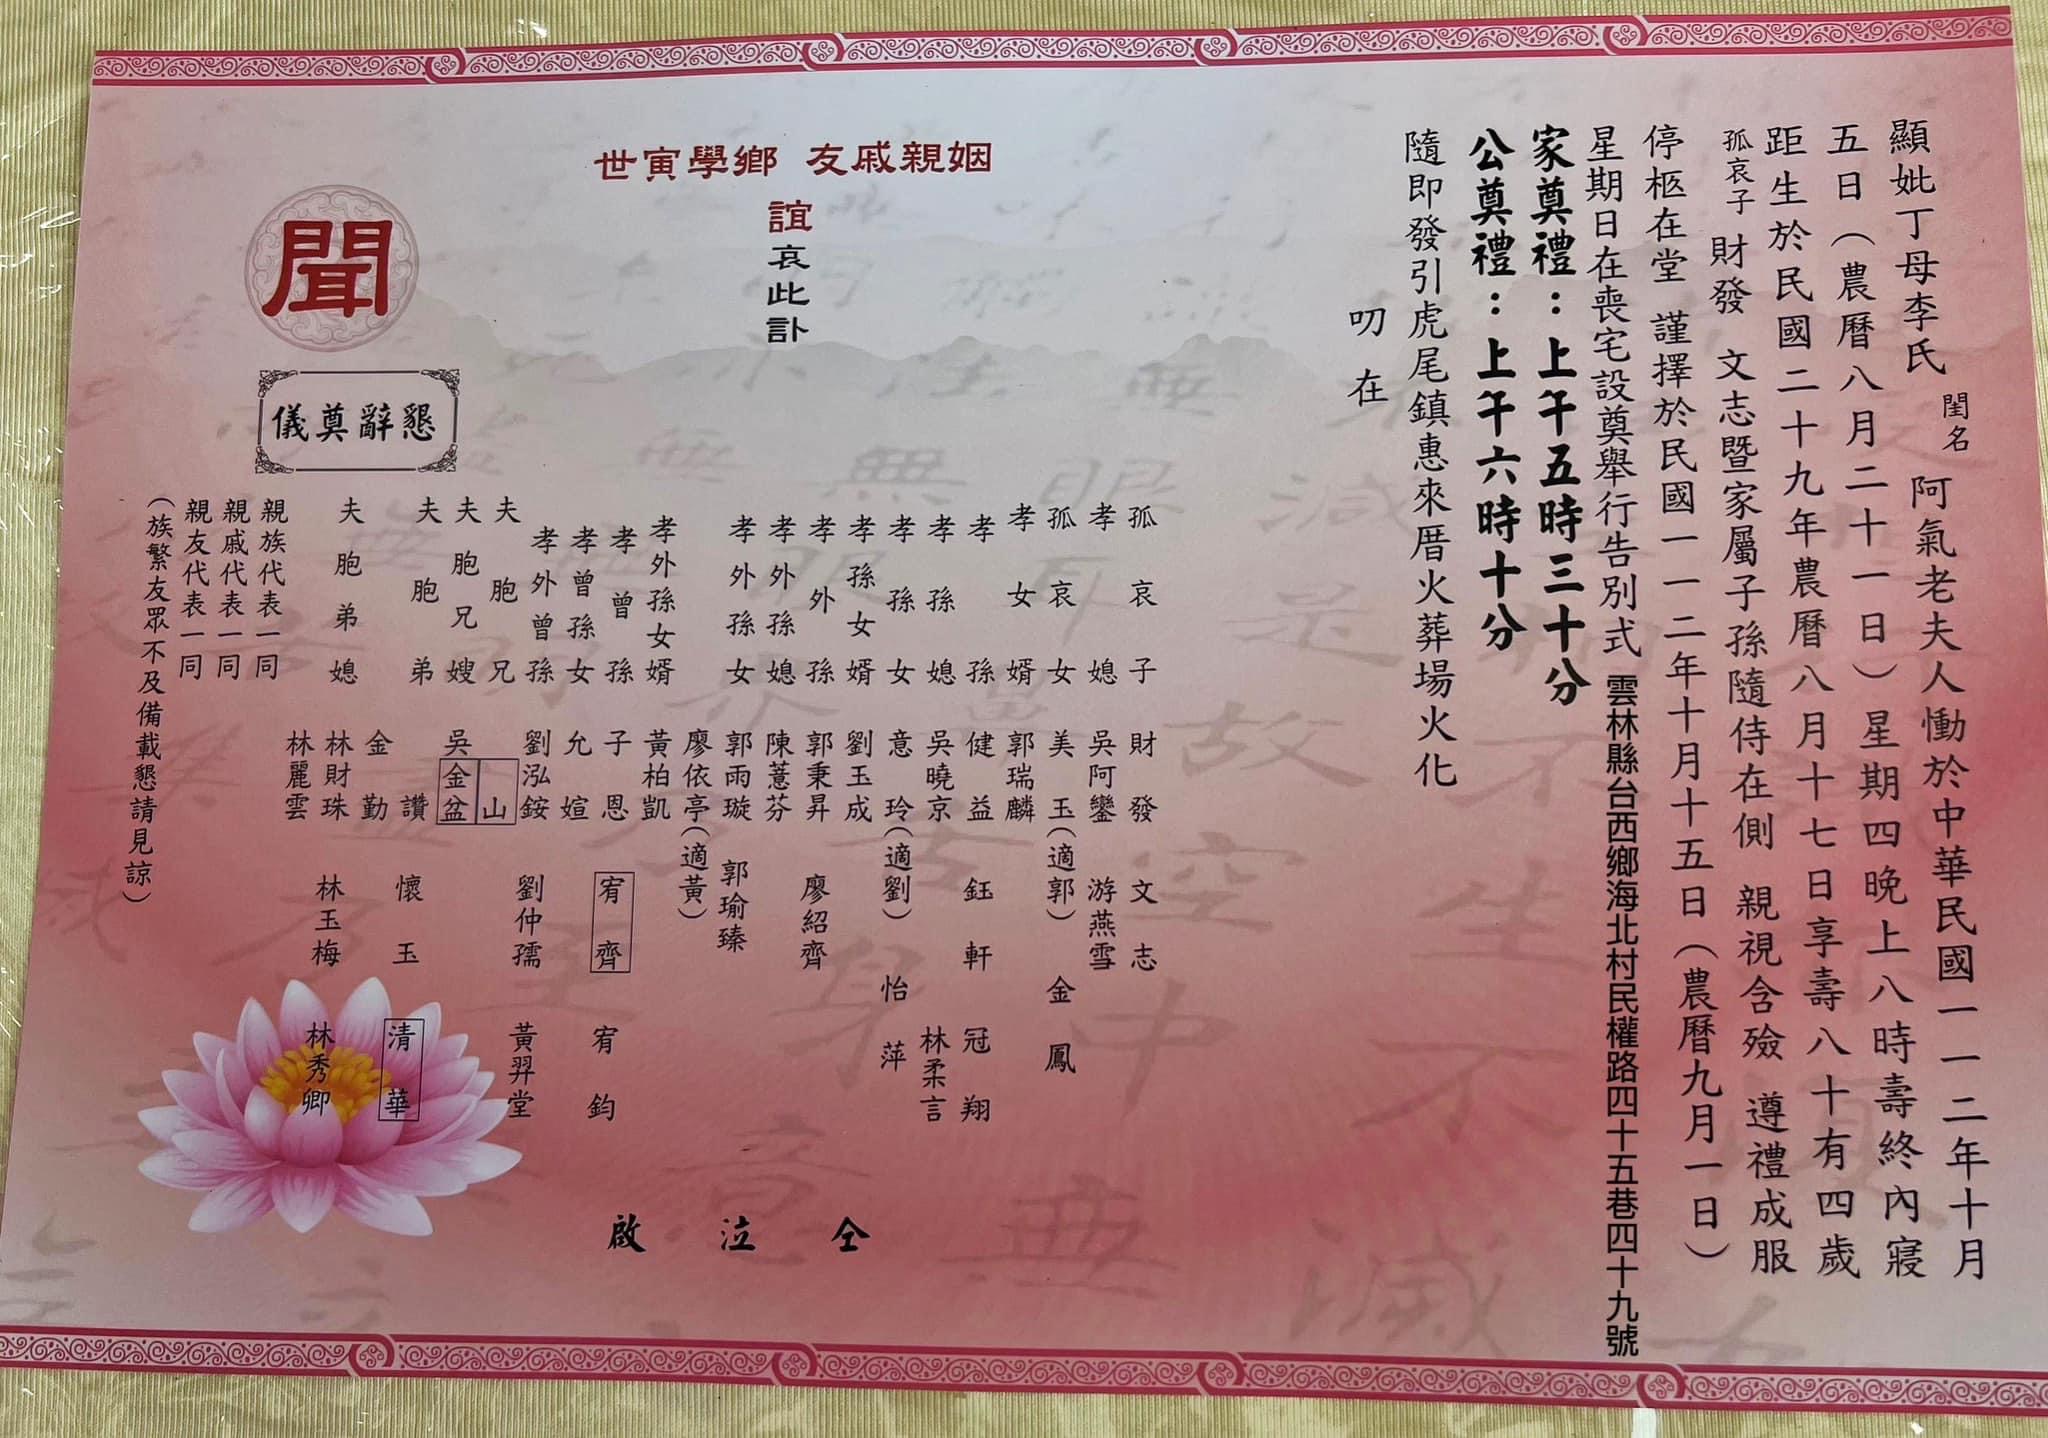 顯妣丁母李氏 閨名 阿氣老夫人慟於中華民國一一二年十月
五日(農曆八月二十一日)星期四晚上八時壽終內寢
距生於民國二十九年農曆八月十七日享壽八十有四歲
孤哀子 財發 文志暨家屬子孫隨侍在側 親視含殮 遵禮成服
停柩在堂 謹擇於民國一一二年十月十五日(農曆九月一日)
星期日在喪宅設奠舉行告別式 雲林縣台西鄉海北村民權路四十五巷四十九號
家奠禮:上午五時三十分
公奠禮:上午六時十分
隨即發引虎尾鎮惠來厝火葬場火化
叨在
姻親戚友 鄉學寅世
誼哀此訃
聞
懇辭奠儀
孤哀子 財發 文志
孝媳 吳阿鑾 游燕雪
孤哀女 美玉(適郭) 金鳳
孝女婿 郭瑞麟
孝孫 健益 鈺軒 冠翔
孝孫媳 吳曉京 林柔言
孝孫女 意玲(適劉) 怡萍
孝孫女婿 劉玉成
孝外孫 郭秉昇 廖紹齊
孝外孫媳 陳薏芬
孝外孫女 郭雨璇 郭瑜臻
廖依亭(適黃)
孝外孫女婿 黃柏凱
孝曾孫 子恩 宥齊 宥鈞
孝曾孫女 允媗
孝外曾孫 劉泓銨 劉仲孺 黃羿堂
夫胞兄 山
夫胞兄嫂 吳金盆
夫胞弟 讚 懷玉 清華
金勤
夫胞弟媳 林財珠 林玉梅 林秀卿
林麗雲
親族代表一同
親戚代表一同
親友代表一同
(族繁友眾不及備載懇請見諒)
仝泣啟